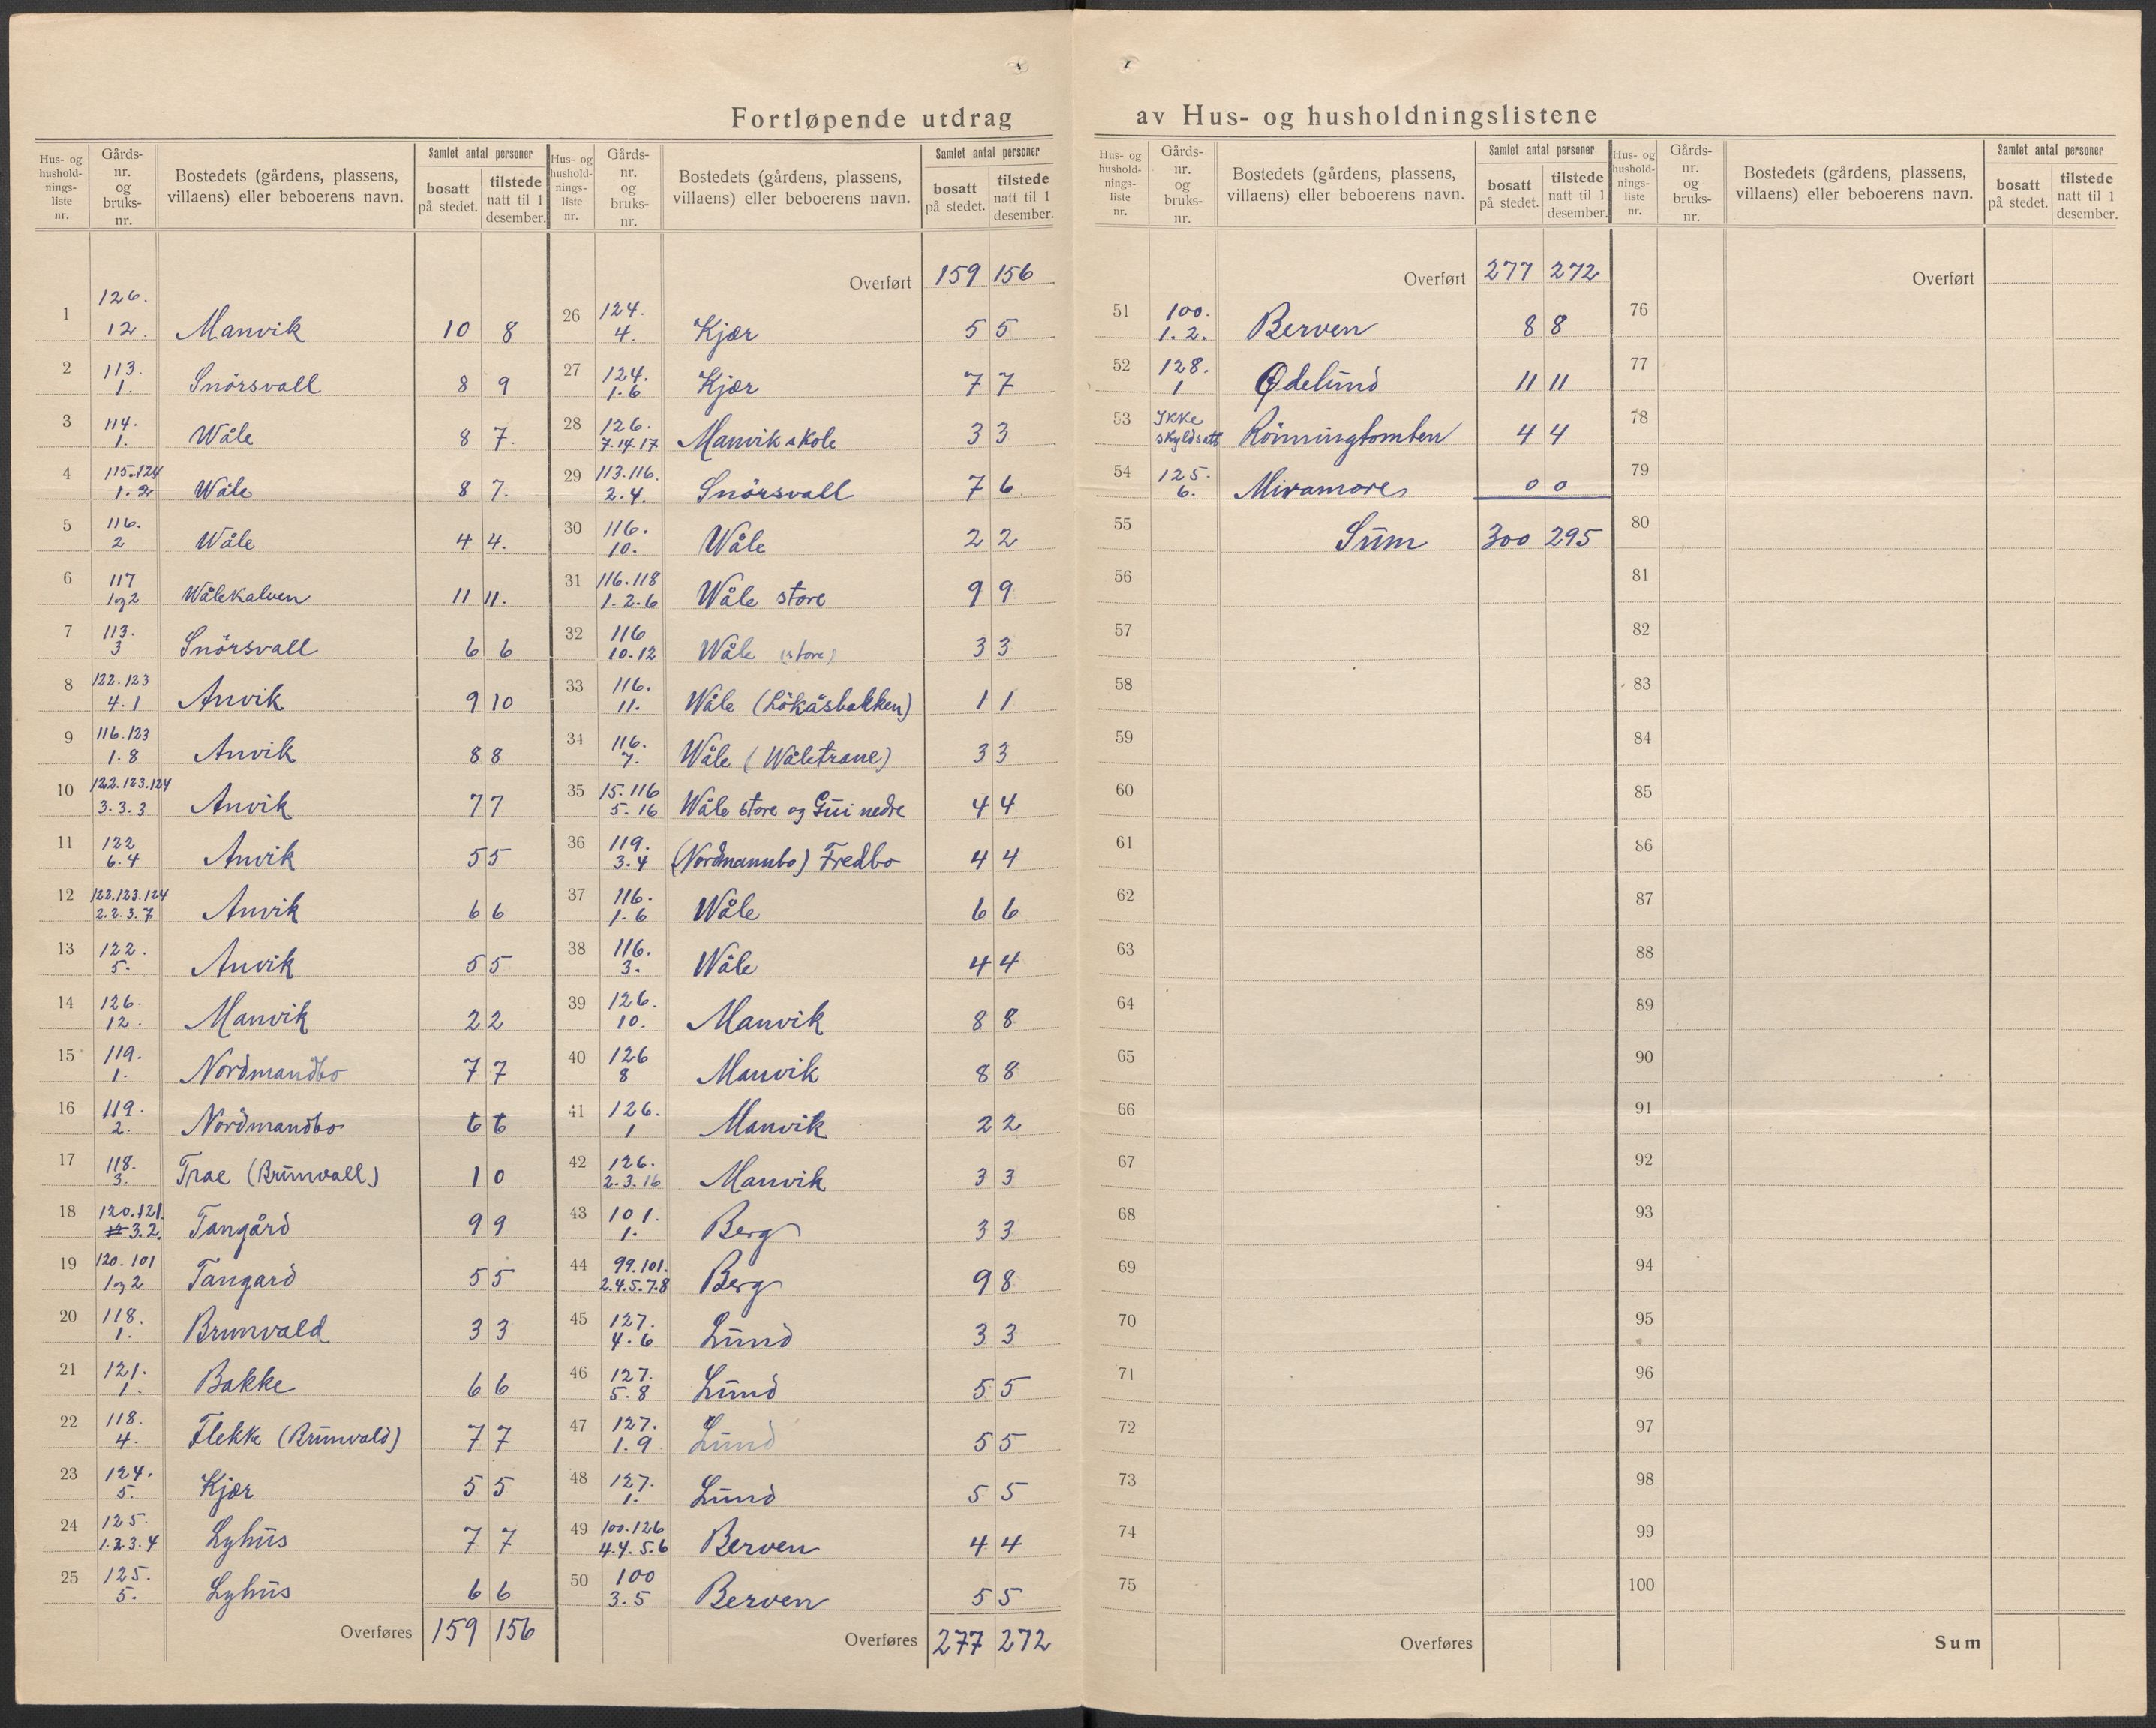 Fortløpende utdrag av Hus- og husholdningslistene
Hus- og husholdnings-liste nr. | Gårds-nr. og bruks-nr. | Bostedets (gårdens, plassens, villaens) eller beboerens navn. | Samlet antal personer | bosatt på stedet. | tilstede natt til 1 desember.
1 126. 12. Manvik 10 8
2 113. 1. Snörsvall 8 9
3 114. 1. Wåle 8 7.
4 115.124 1. 2 Wåle 8 7.
5 116. 2 Wåle 4 4.
6 117 1og2 Wålekalven 11 11.
7 113. 3 Snörsvall 6 6
8 122.123 4.1 Anvik 9 10
9 116.123 1.8 Anvik 8 8
10 122.123.124 3.3.3 Anvik 7 7
11 122 6.4 Anvik 5 5
12 122.123.124 2.2.3.7 Anvik 6 6
13 122. 5. Anvik 5 5
14 126. 12. Manvik 2 2
15 119. 1. Nordmandbo 7 7
16 119. 2. Nordmandbo 6 6
17 118. 3. Trae (Brunvall) 1 0
18 120.121. 3.2. Tangård 9 9
19 120.101 1og2 Tangard 5 5
20 118. 1. Brunvald 3 3
21 121. 1. Bakke 6 6
22 118. 4. Flekke (Brunvald) 7 7
23 124. 5. Kjær 5 5
24 125. 1.2.3.4 Lyhus 7 7
25 125. 5. Lyhus 6 6
Overføres 159 156
Hus- og husholdnings-liste nr. | Gårds-nr. og bruks-nr. | Bostedets (gårdens, plassens, villaens) eller beboerens navn. | Samlet antal personer | bosatt på stedet. | tilstede natt til 1 desember.
Overført 159 156
26 124. 4. Kjær 5 5
27 124. 1.6 Kjær 7 7
28 126. 7.14.17 Manvik skole 3 3
29 113.116. 2.4. Snörsvall 7 6
30 116. 10. Wåle 2 2
31 116.118 1.2.6 Wåle store 9 9
32 116 10.12 Wåle (store) 3 3
33 116. 11. Wåle (Lökåsbakken) 1 1
34 116. 7. Wåle (Wåletrane) 3 3
35 15.116 5.16 Wåle store og Gui nedre 4 4
36 119. 3.4 (Nordmannbo) Fredbo 4 4
37 116. 1.6 Wåle 6 6
38 116. 3. Wåle 4 4
39 126. 10. Manvik 8 8
40 126 8 Manvik 8 8
41 126. 1 Manvik 2 2
42 126. 2.3.16 Manvik 3 3
43 101. 1. Berg 3 3
44 99.101. 2.4.5.7.8 Berg 9 8
45 127. 4.6 Lund 3 3
46 127. 5.8 Lund 5 5
47 127. 1.9 Lund 5 5
48 127. 1. Lund 5 5
49 100.126 4.4.5.6 Berven 4 4
50 100 3.5 Berven 5 5
Overføres 277 272
Hus- og husholdnings-liste nr. | Gårds-nr. og bruks-nr. | Bostedets (gårdens, plassens, villaens) eller beboerens navn. | Samlet antal personer | bosatt på stedet. | tilstede natt til 1 desember.
Overført 277 272
51 100. 1.2. Berven 8 8
52 128. 1 Ødelund 11 11
53 Ikke skyldsatt Rönningtomten 4 4
54 125. 6. Miramare 0 0
55 Sum 300 295
56
57
58
59
60
61
62
63
64
65
66
67
68
69
70
71
72
73
74
75
Overføres
Hus- og husholdnings-liste nr. | Gårds-nr. og bruks-nr. | Bostedets (gårdens, plassens, villaens) eller beboerens navn. | Samlet antal personer | bosatt på stedet. | tilstede natt til 1 desember.
Overført
76
77
78
79
80
81
82
83
84
85
86
87
88
89
90
91
92
93
94
95
96
97
98
99
100
Sum